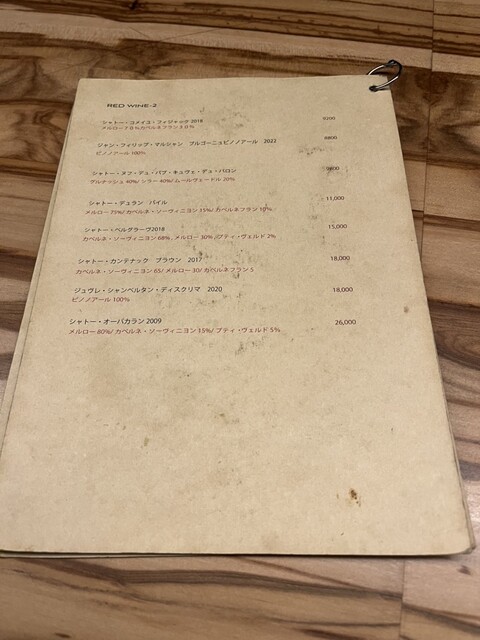 RED WINE-2
シャトー・コメイユ・フィジャック 2018 9200
メルロー70%カベルネフラン30%
ジャン・フィリップ・マルシャン ブルゴーニュピノノアール 2022 9800
ピノノアール 100%
シャトー・ヌフ・デュ・パプ・キュヴェ・デュ・バロン 9800
グルナッシュ 40%/ シラー 40%/ ムールヴェードル 20%
シャトー・デュラン バイル 11,000
メルロー 75%/ カベルネ・ソーヴィニヨン 15%/ カベルネフラン 10%
シャトー・ベルグラーヴ2018 15,000
カベルネ・ソーヴィニヨン 68%, メルロー 30%, プティ・ヴェルド 2%
シャトー・カンテナック ブラウン 2017 18,000
カベルネ・ソーヴィニヨン 65/ メルロー 30/ カベルネフラン 5
ジュヴレ・シャンベルタン・ディスクリマ 2020 18,000
ピノノアール 100%
シャトー・オーバカラン 2009 26,000
メルロー 80%/ カベルネ・ソーヴィニヨン 15%/ プティ・ヴェルド 5%